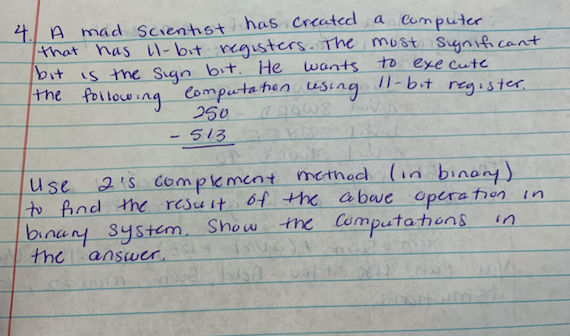 4. A mad scientist has created a computer
that has 11-bit registers. The most significant
bit is the sign bit. He wants to execute
the following computation using 11-bit register.
250
- 513
Use 2's complement method (in binary)
to find the result of the above operation in
binary system. Show the computations in
the answer.